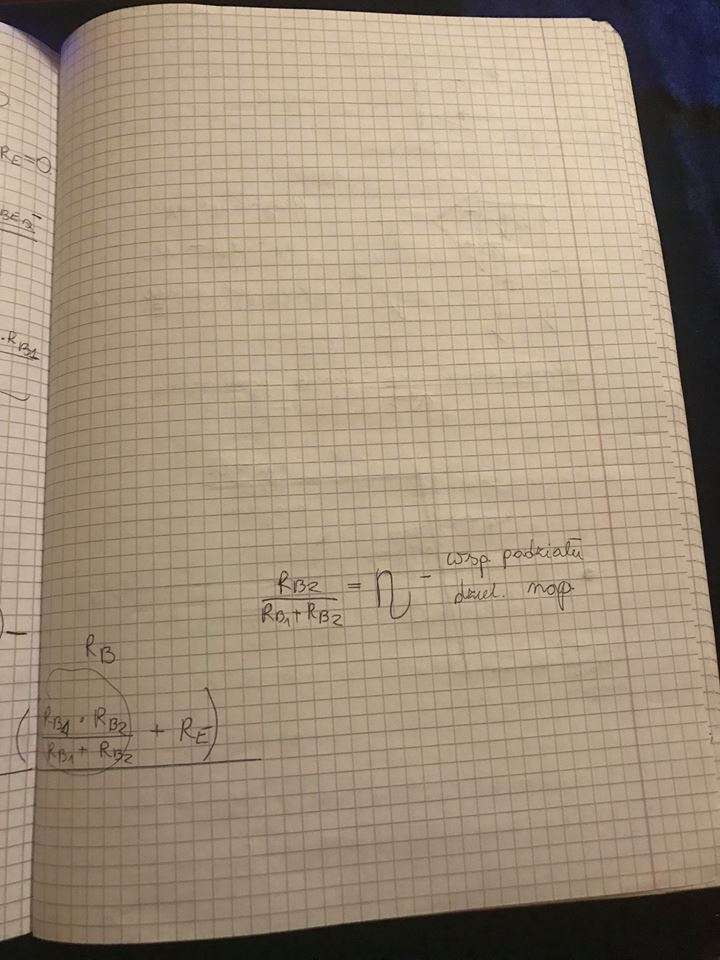 R_E=0
BEQ
·R_B1
R_B2 / (R_B1 + R_B2) = η - wsp. podziału
dziel. nap.
) -
R_B
( (R_B1 · R_B2) / (R_B1 + R_B2) + R_E )